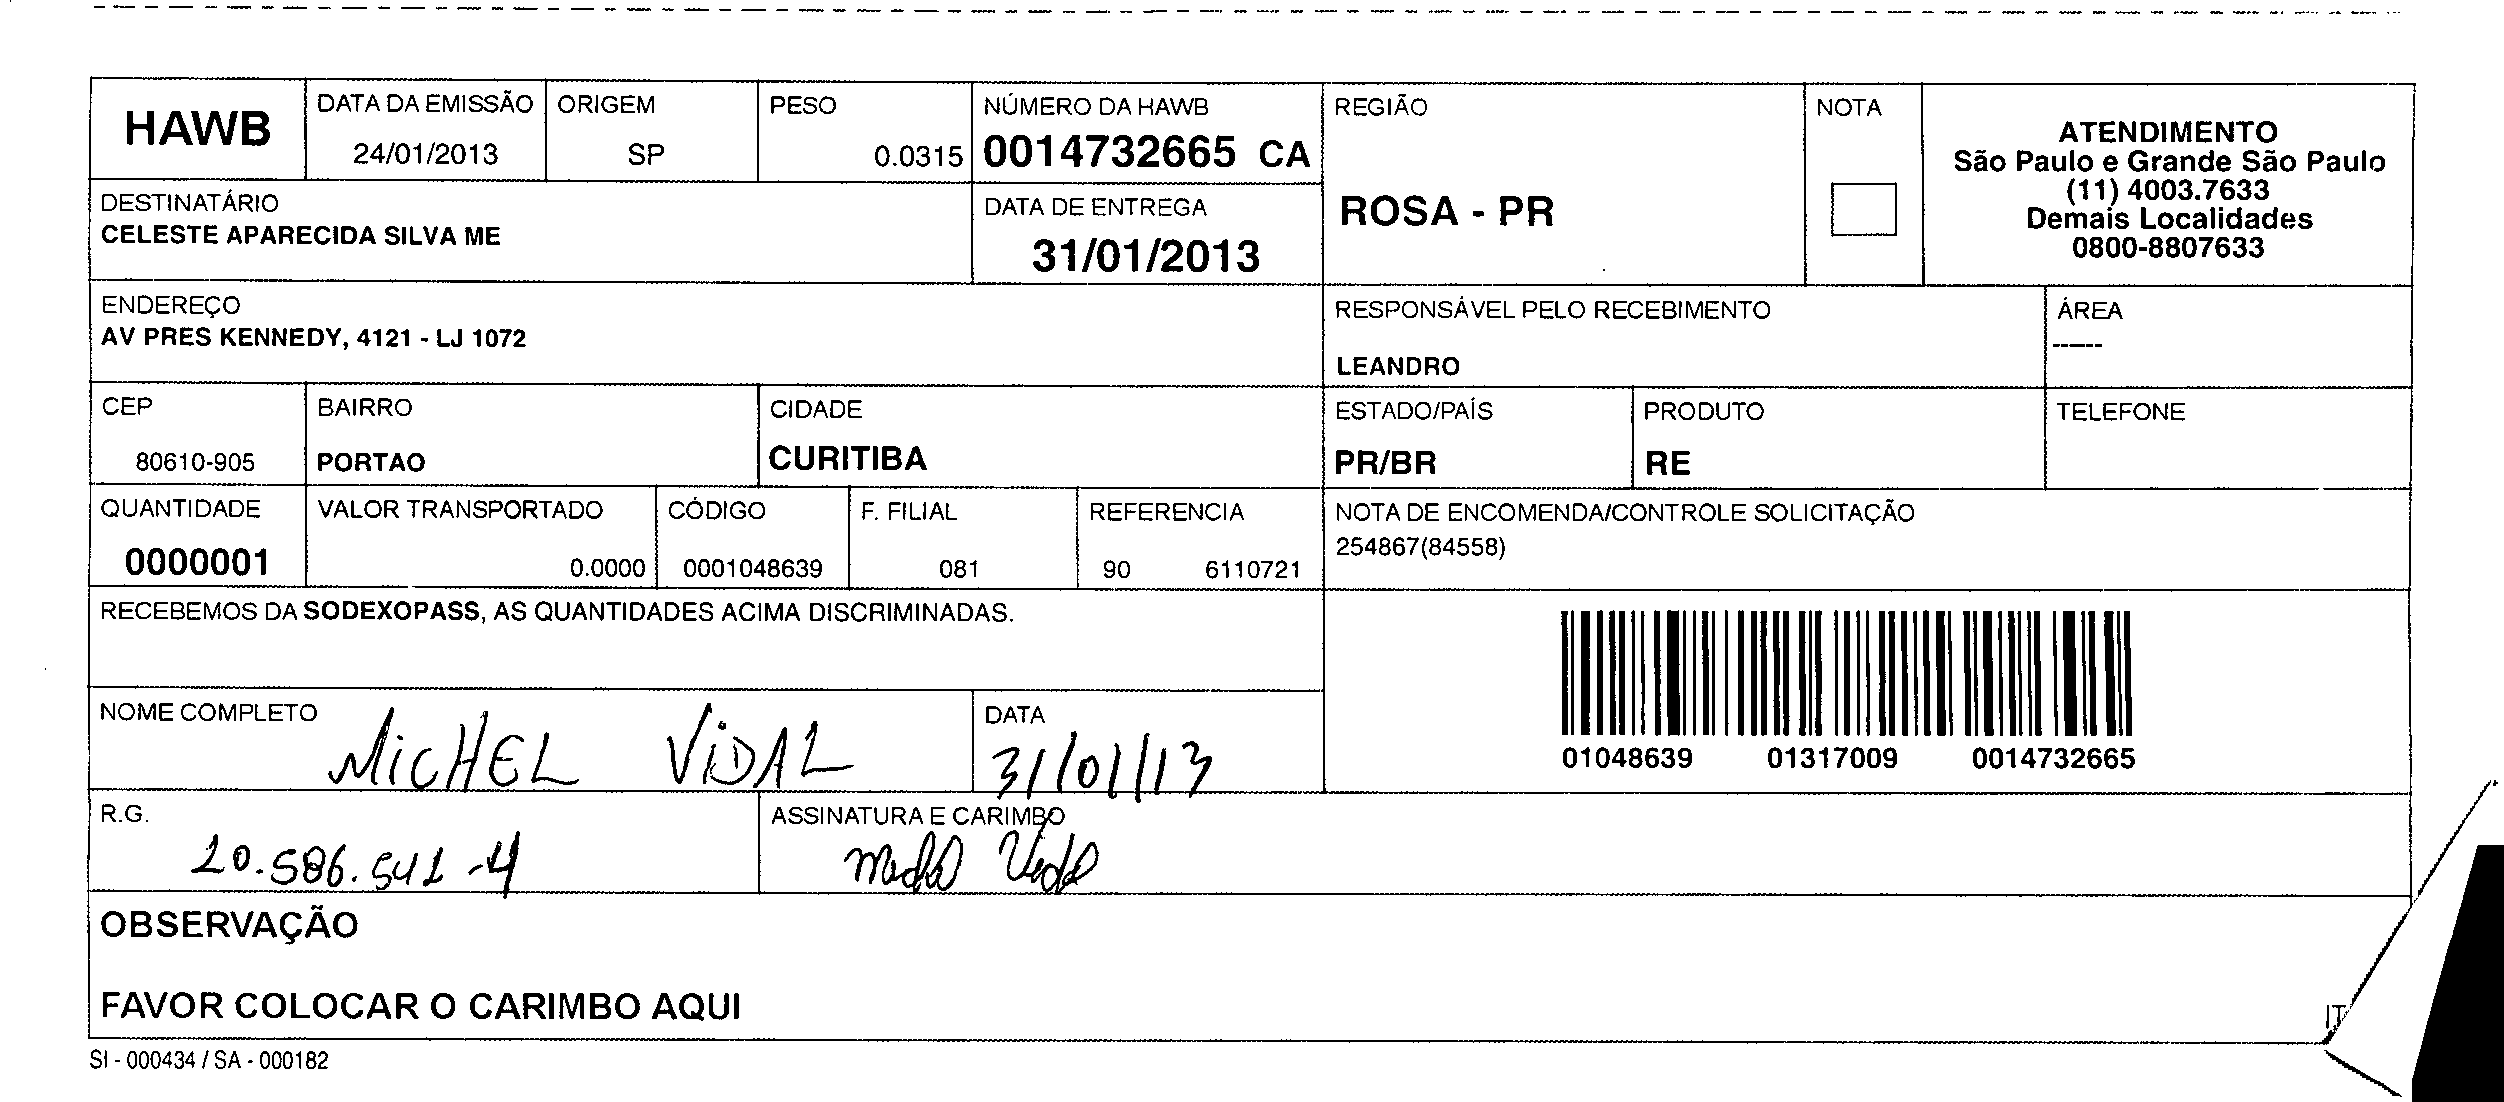 HAWB
DATA DA EMISSÃO
24/01/2013
ORIGEM
SP
PESO
0.0315
NÚMERO DA HAWB
0014732665 CA
REGIÃO
ROSA - PR
NOTA
ATENDIMENTO
São Paulo e Grande São Paulo
(11) 4003.7633
Demais Localidades
0800-8807633
DESTINATÁRIO
CELESTE APARECIDA SILVA ME
DATA DE ENTREGA
31/01/2013
ENDEREÇO
AV PRES KENNEDY, 4121 - LJ 1072
RESPONSÁVEL PELO RECEBIMENTO
LEANDRO
ÁREA
-----
CEP
80610-905
BAIRRO
PORTAO
CIDADE
CURITIBA
ESTADO/PAÍS
PR/BR
PRODUTO
RE
TELEFONE
QUANTIDADE
0000001
VALOR TRANSPORTADO
0.0000
CÓDIGO
0001048639
F. FILIAL
081
REFERENCIA
90 6110721
NOTA DE ENCOMENDA/CONTROLE SOLICITAÇÃO
254867(84558)
RECEBEMOS DA SODEXOPASS, AS QUANTIDADES ACIMA DISCRIMINADAS.
01048639 01317009 0014732665
NOME COMPLETO
MiCHEL ViDAL
DATA
31/01/13
R.G.
10.586.541-4
ASSINATURA E CARIMBO
OBSERVAÇÃO
FAVOR COLOCAR O CARIMBO AQUI
IT
SI - 000434 / SA - 000182